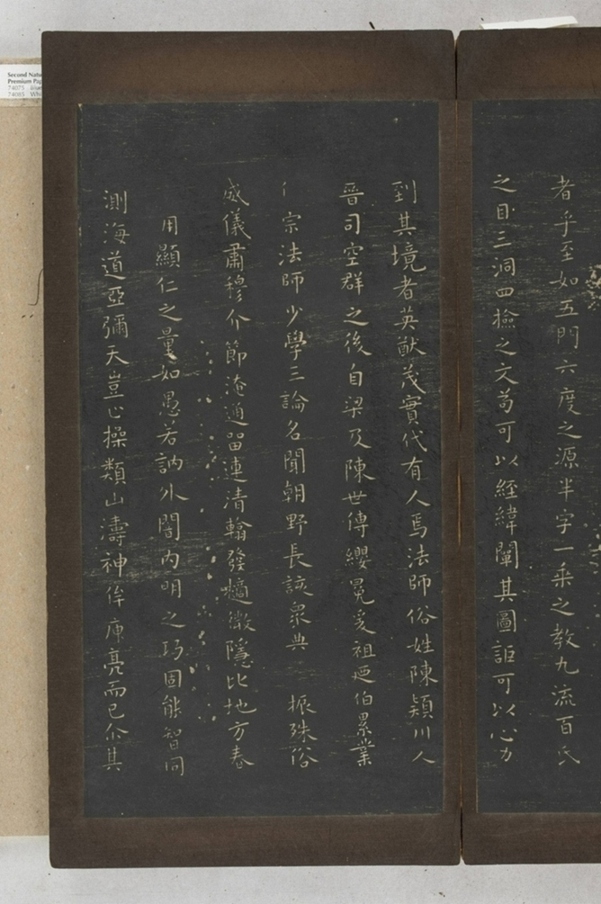 者乎至如五門六度之源半字一乘之教九流百氏
之目三洞四撿之文苟可以經緯闡其圖詎可以心力
到其境者英猷茂實代有人焉法師俗姓陳潁川人
晉司空群之後自梁及陳世傳纓冕爰祖廼伯累業
宗法師少學三論名聞朝野長該衆典 振殊俗
威儀肅穆介節淹通留連清翰發擿微隱比地方春
用顯仁之量如愚若訥外闇內明之巧固能智同
測海道亞彌天豈止操類山濤神侔庾亮而已仚其
Second Natu
Premium Pap
74075
74085